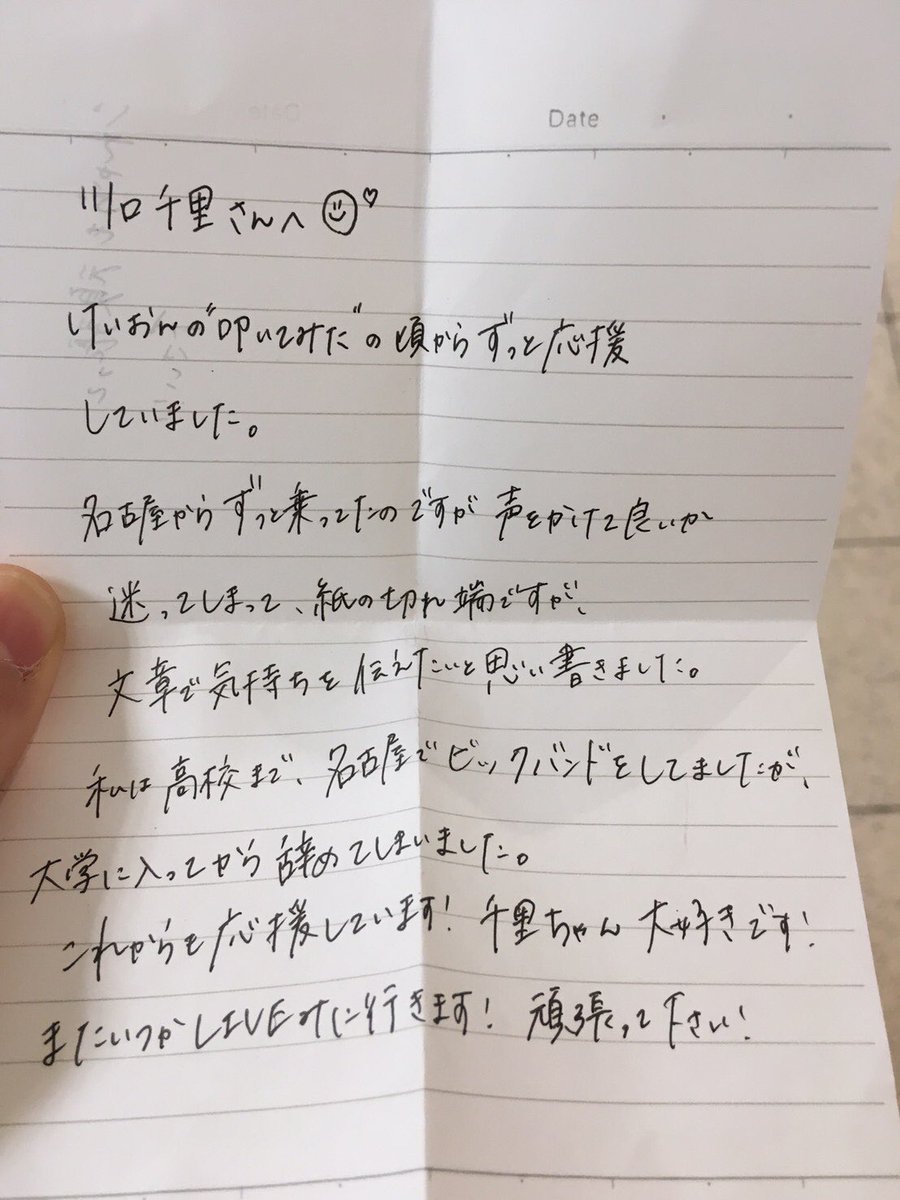 Date
川口千里さんへ
けいおんの"叩いてみた"の頃からずっと応援
していました。
名古屋からずっと乗ってたのですが声をかけて良いか
迷ってしまって、紙の切れ端ですが、
文章で気持ちを伝えたいと思い書きました。
私は高校まで、名古屋でビックバンドをしてましたが、
大学に入ってから辞めてしまいました。
これからも応援しています! 千里ちゃん大好きです!
またいつかLIVEみに行きます! 頑張って下さい!